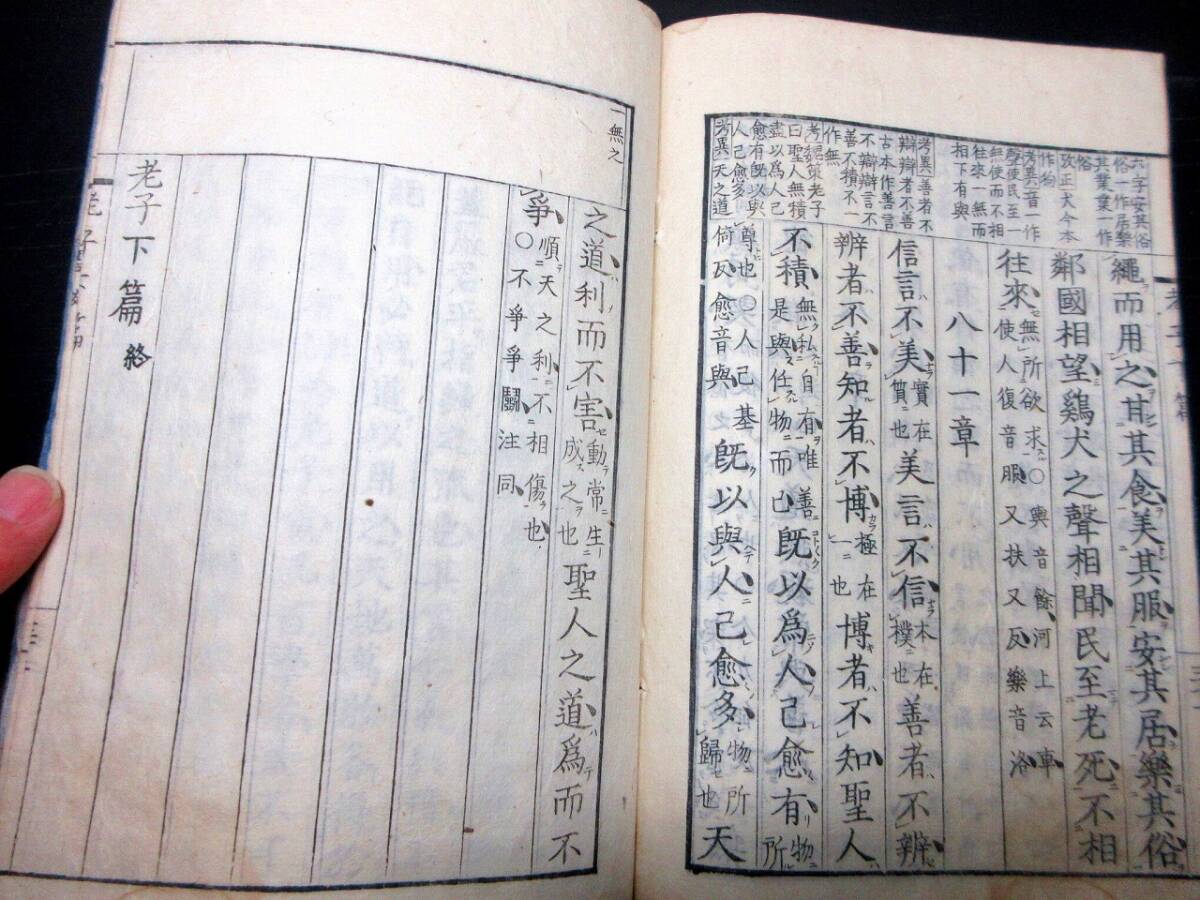 六字安其俗
俗一作居樂
其業業一作
俗
攷正大今本
作狗
考異音一作
聲使民至一
無使而不相
往來一無而
相下有與
考異善者不
辯辯者不善
古本作善言
不辯辯言不
善不積不一
作無
考魏策老子
曰聖人無積
盡以爲人己
愈有既以與
人己愈多
考異一天之道
繩而用之甘其食美其服安其居樂其俗
鄰國相望鷄犬之聲相聞民至老死不相
往來無所欲求○輿音餘河上云車
使人復音服又扶又反樂音洛
八十一章
信言不美實在質也美言不信樸也本在善者不辨
辨者不善知者不博極在一也博者不知聖人
不積無私自有唯善是與任物而已既以爲人己愈有物所
尊也與人己基
倚反愈音與既以與人己愈多物所歸也天
一無之
之道利而不害動常生成之也聖人之道爲而不
爭順天之利不相傷也
○不爭爭鬪注同
老子下篇終